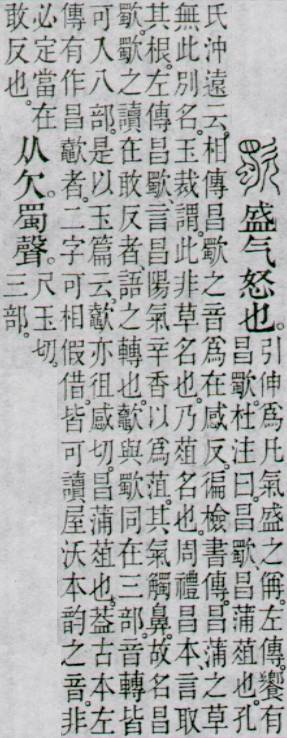 歜盛气怒也。
引伸爲凡氣盛之偁。左傳。饗有
昌歜。杜注曰。昌歜、昌蒲葅也。孔
氏沖遠云。相傳昌歜之音爲在感反。徧檢書傳。昌蒲之草
無此別名。玉裁謂。此非草名也。乃葅名也。周禮昌本、言取
其根。左傳昌歜、言昌陽氣辛香以爲菹。其氣觸鼻。故名昌
歜。歜之讀在敢反者、語之轉也。與歜同在三部。音轉皆
可入八部。是以玉篇云。亦徂感切。昌蒲葅也。葢古本左
傳有作昌者。二字可相假借。皆可讀屋沃本韵之音。非
必定當在
敢反也。
从欠。蜀聲。
尺玉切。
三部。